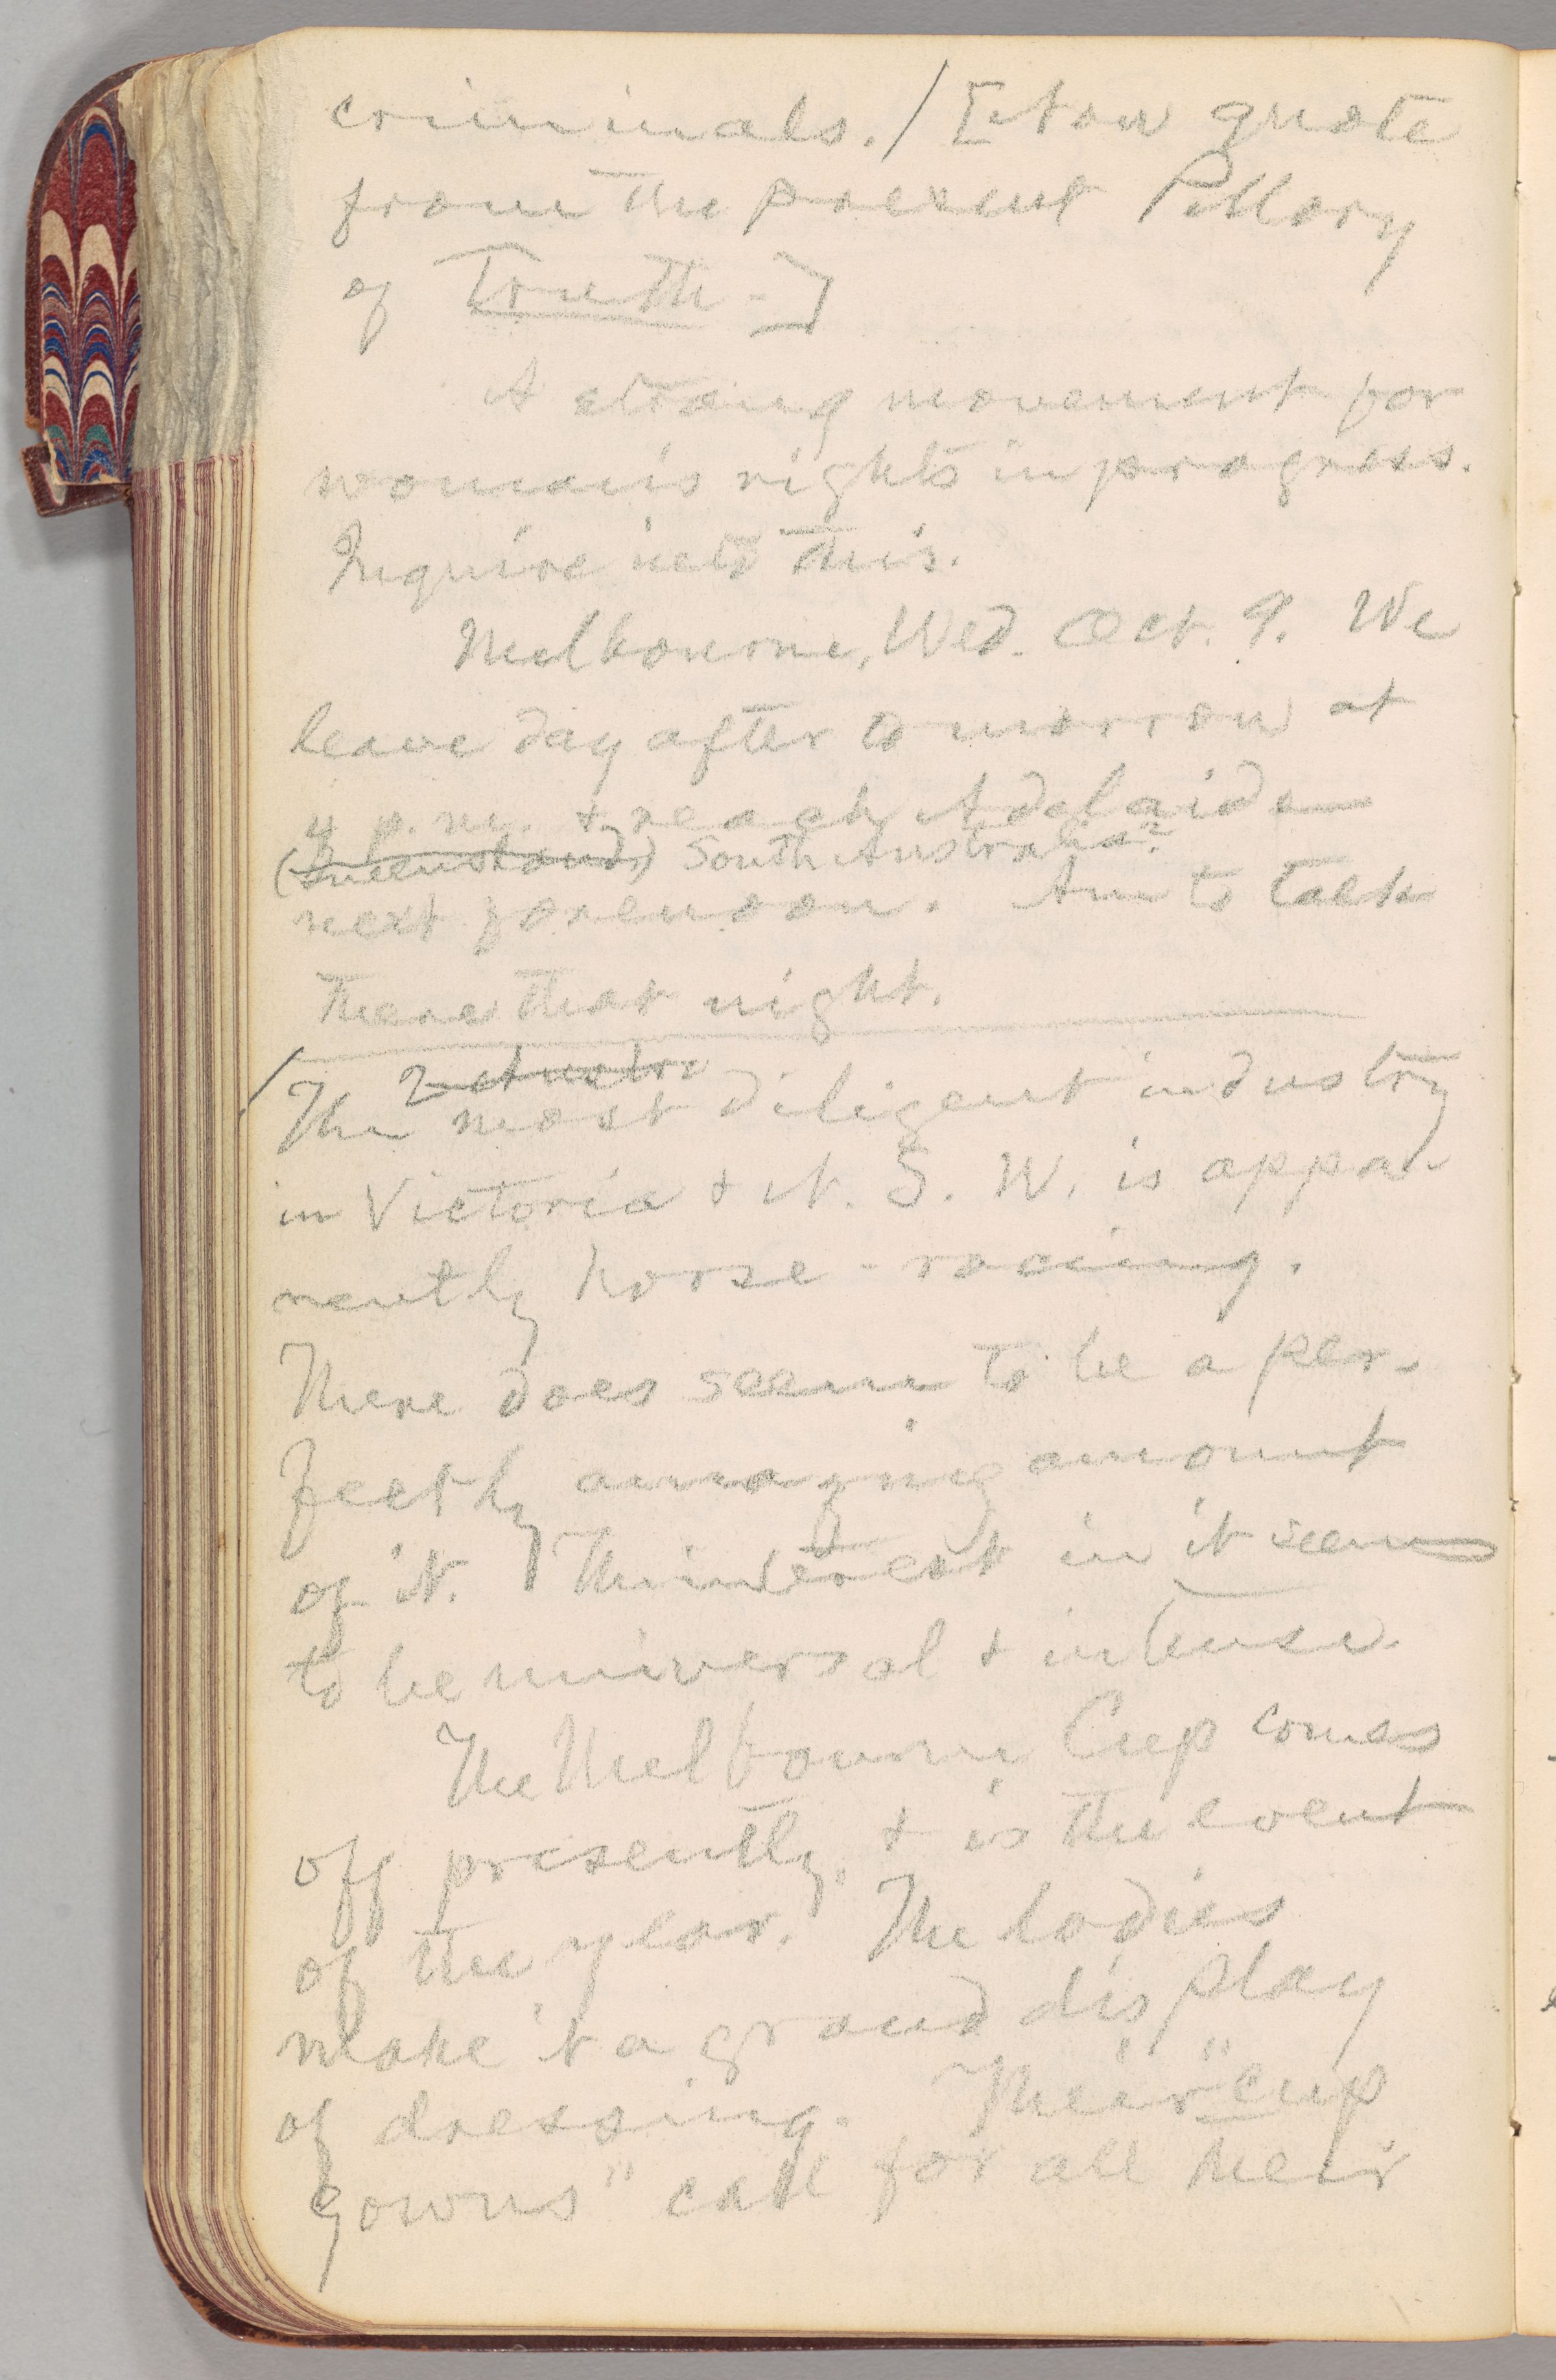 criminals. / [Now quote
from the present Pillory
of Truth-]
A strong movement for
woman's rights in progress.
Inquire into this.
Melbourne, Wed. Oct. 9. We
leave day after to morrow at
4 p.m. & reach Adelaide
(Queensland,) South Australia?
next forenoon. Am to talk
there that night.
The most diligent industry
in Victoria & N. S. W. is appa-
rently horse-racing.
There does seem to be a per-
fectly amazing amount
of it. The interest in it seems
to be universal & intense.
The Melbourne Cup comes
off presently, & is the event
of the year. The ladies
make it a grand display
of dressing. Their "cup
gowns" call for all their